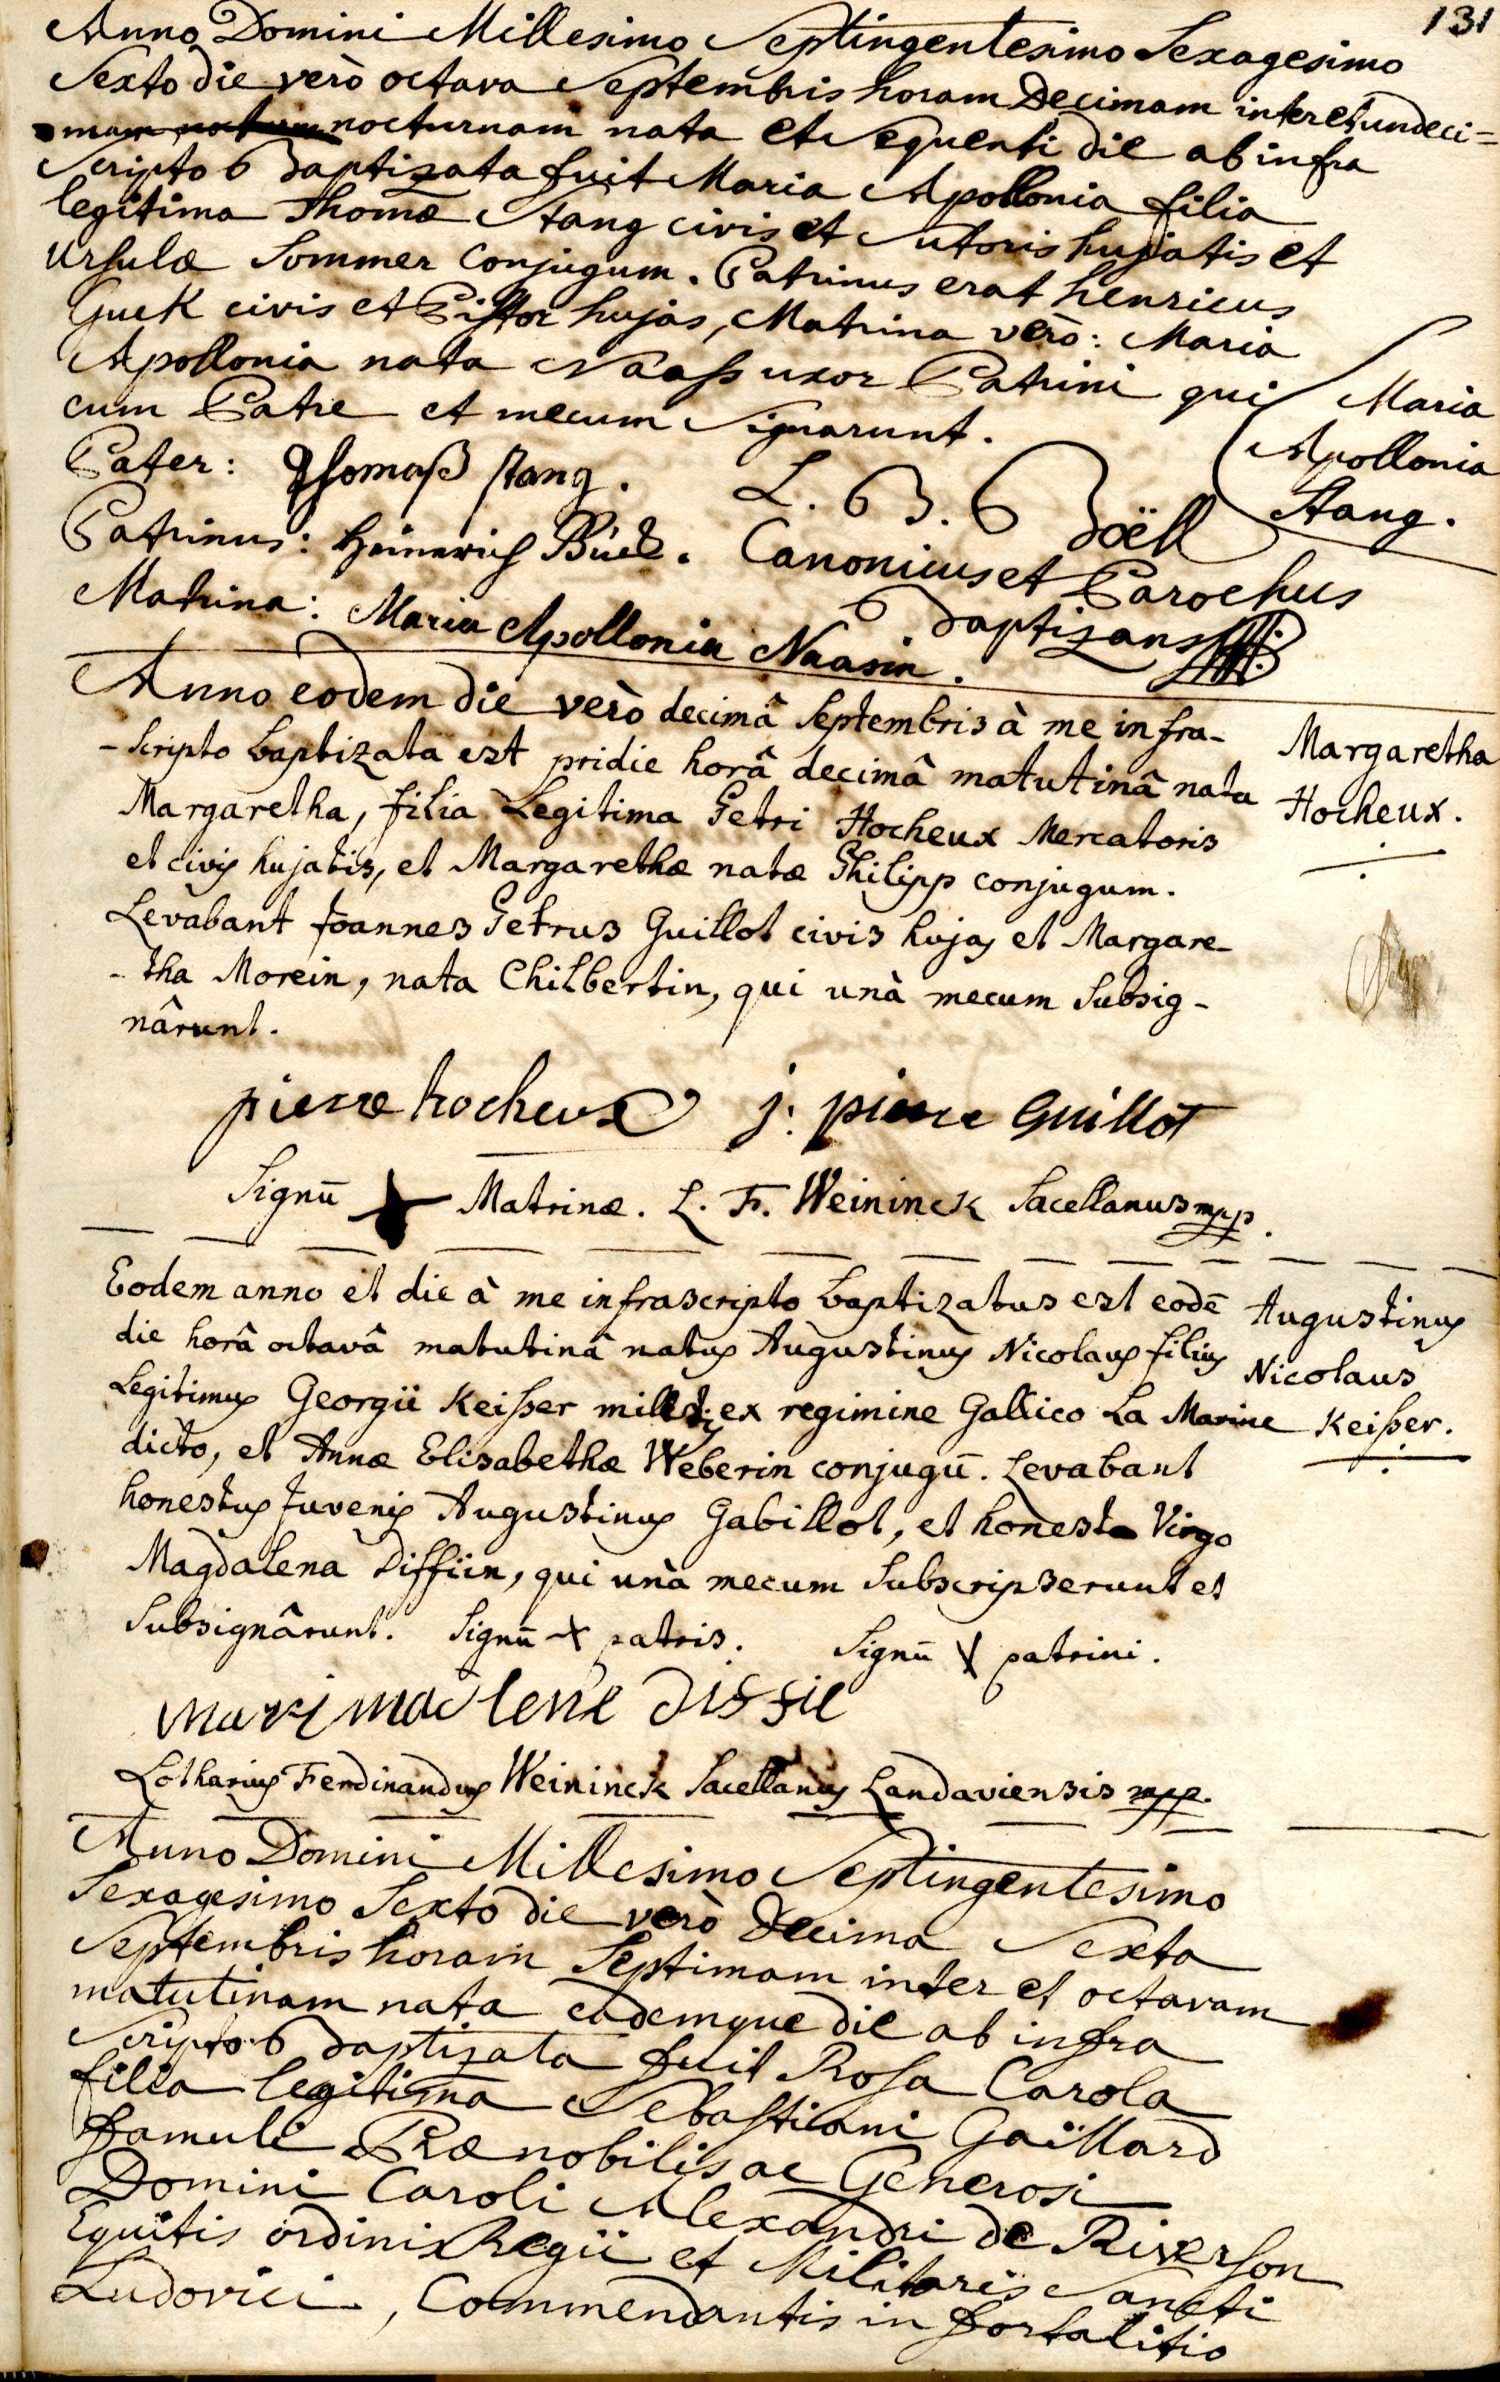 131
Anno Domini Millesimo Septingentesimo Sexagesimo
Sexto die verò octava Septembris horam Decimam inter et undeci=
mam nocturnam nata et Sequenti die ab infra
Scripto Baptizata fuit Maria Apollonia filia
legitima Thomæ Stang civis et Sutoris hujatis et
Ursulæ Sommer Conjugum. Patrinus erat henricus
Guck civis et Pistor hujas, Matrina verò: Maria
Apollonia nata Naaß uxor Patrini qui
cum Patre et mecum Signarunt.
Maria
Apollonia
Stang.
Pater: Thomaß stang.
L. B. Boëll
Patrinus: Heinerich
Canonicus et Parochus
Matrina: Maria Apollonia Naasin.
Baptizans
Anno eodem die verò decimâ Septembris à me infra-
-scripto baptizata est pridie horâ decimâ matutinâ nata
Margaretha, filia Legitima Petri Hocheux Mercatoris
et civis hujatis, et Margarethæ natæ Philipp conjugum.
Levabant Joannes Petrus Guillot civis hujas et Margare-
-tha Morein, nata Chilbertin, qui unà mecum Subsig-
nârunt.
Margaretha
Hocheux.
pierre hocheux j: pierre Guillot
Signū Matrinæ. L. F. Weininck Sacellanus mpp.
Eodem anno et die à me infrascripto baptizatus est eodē
die horâ octavâ matutinâ natus Augustinus Nicolaus filius
Legitimus Georgii Keißer militis ex regimine Gallico La Marine
dicto, et Annæ Elisabethæ Weberin conjugū. Levabant
honestus Juvenis Augustinus Gabillot, et honesta Virgo
Magdalena Diffiin, qui unà mecum Subscripserunt et
Subsignârunt. Signū x patris. Signū x patrini.
Augustinus
Nicolaus
Keißer.
mari madlene diffie
Lotharius Ferdinandus Weininck Sacellanus Landaviensis mpp.
Anno Domini Millesimo Septingentesimo
Sexagesimo Sexto die verò Decima Sexta
Septembris horam Septimam inter et octavam
matutinam nata eademque die ab infra
Scripto Baptizata fuit Rosa Carola
filia legitima Sebastiani Gaillard
famuli Prænobilis ac Generosi
Domini Caroli Alexandri de Riverson
Equitis ordinis Regii et Militaris Sancti
Ludovici, Commendantis in fortalitio